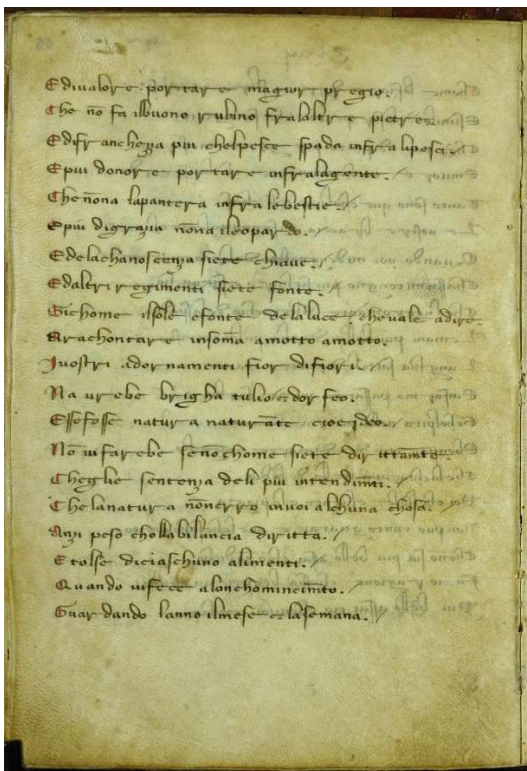 E divalore portare magior pregio.
Che nō fa ilbuono rubino fralaltre pietre.
E difranchezza piu chelpesce spada infra lipesci.
E piu donore portare infralagente.
Che nōna lapantera infra lebestie.
E piu digrazia nōna ileopardo.
E delachanoscenza siete chiave.
E daltri regimenti siete fonte.
Sichome ilsole efonte delaluce chevale adire.
A rachontare insoma amotto amotto.
I vostri adornamenti fior difiori.
N a vrebe brigha tulio edorfeo.
E ssefosse natura naturāte cioe ideo.
N ō vifarebe senōchome siete dirittamte
C heglie sentenza deli piu intendimti.
C he lanatura nōnerro invoi alchuna chosa.
A nzi peso cholla bilancia diritta.
E tolse diciaschuno alimenti.
Q uando vifece alonchominciamto.
G uardando lanno ilmese elasemana.